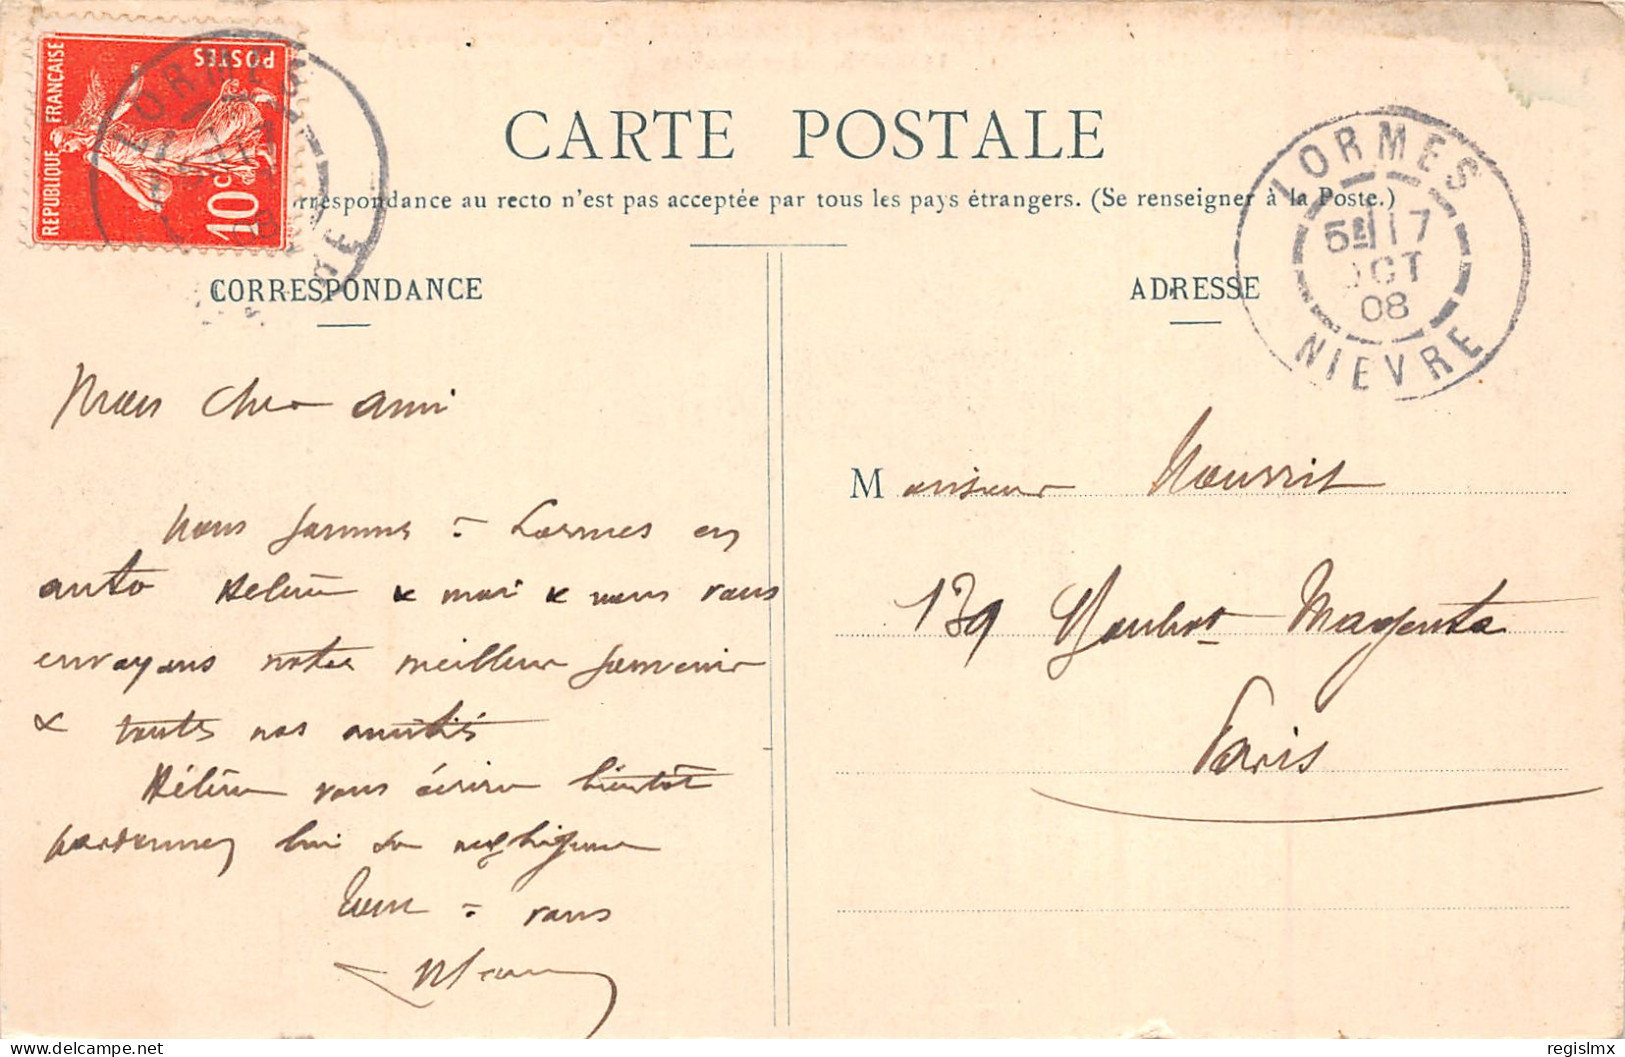 REPUBLIQUE FRANÇAISE
POSTES
10 c
LORMES
NIEVRE
CARTE POSTALE
rrespondance au recto n'est pas acceptée par tous les pays étrangers. (Se renseigner à la Poste.)
CORRESPONDANCE
Mon cher ami
Nous sommes à Lormes en
auto Hélène & moi & nous vous
envoyons notre meilleur souvenir
& toutes nos amitiés
Hélène vous écrira bientôt
pardonnez lui sa négligence
Bien à vous
ADRESSE
LORMES
5E 17
OCT
08
NIEVRE
Monsieur Nourrit
139 Boulevt Magenta
Paris
delcampe.net
regislmx